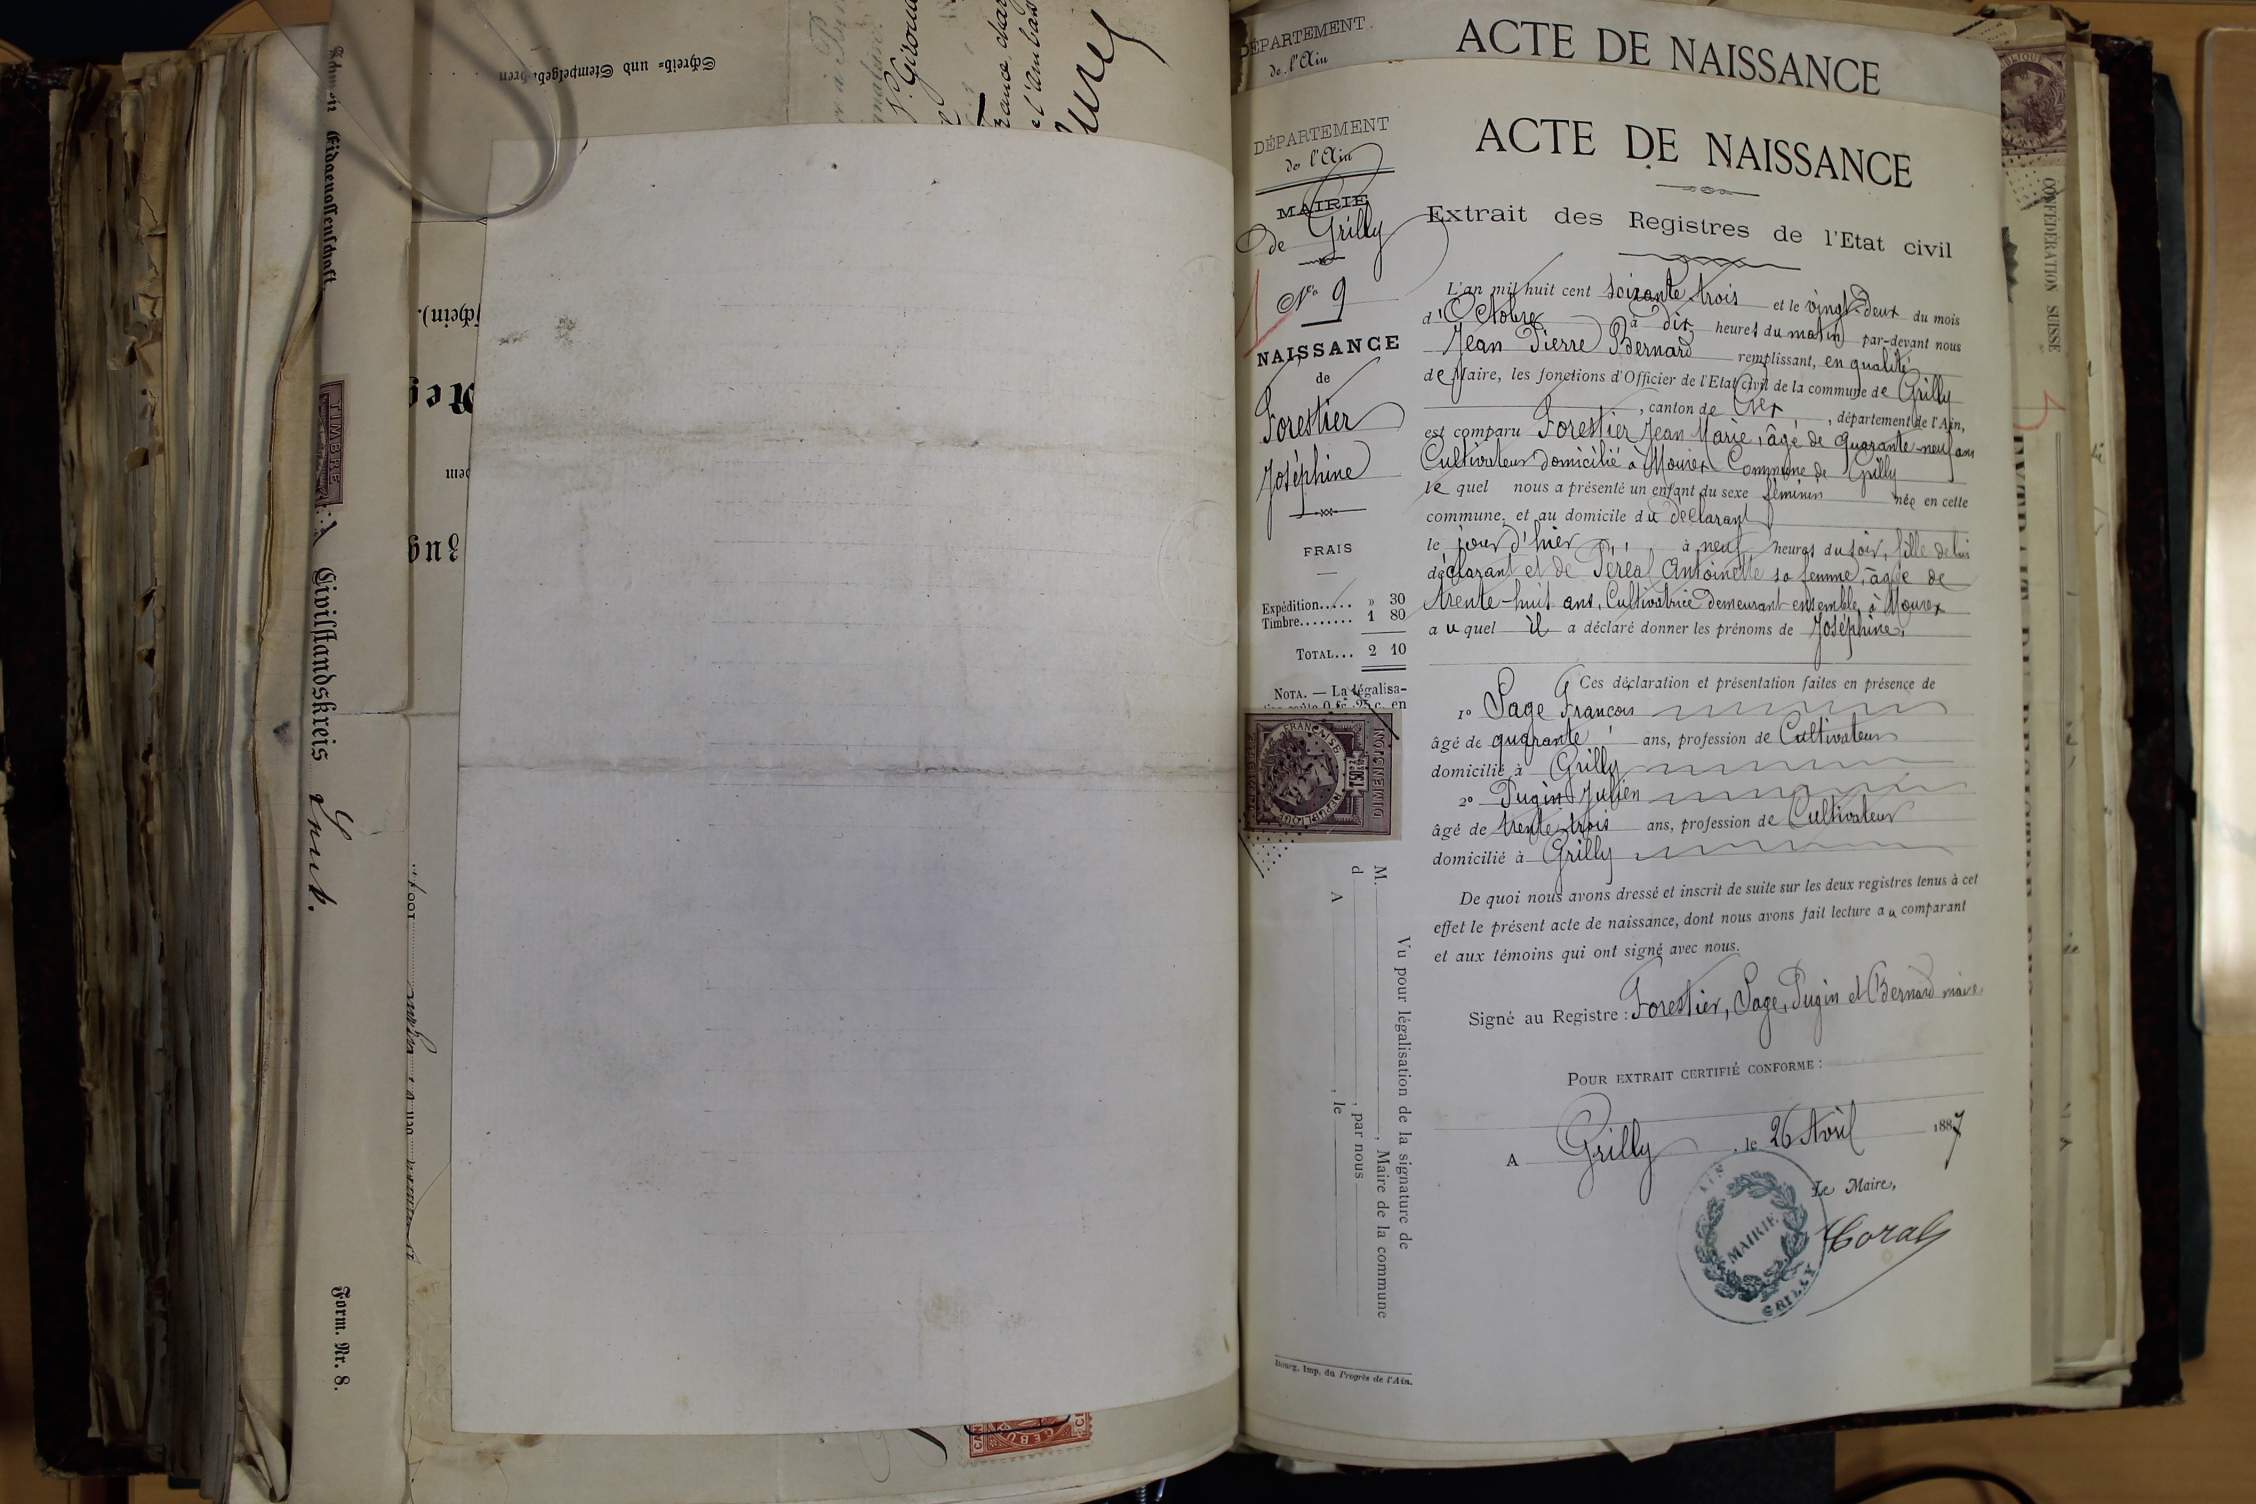 Schreib- und Stempelgebühren
Eidgenossenschaft.
TIMBRE
Civilstandskreis
Form. Nr. 8.
DÉPARTEMENT
de l'Ain
ACTE DE NAISSANCE
DÉPARTEMENT
de l'Ain
MAIRIE
de Grilly
No 9
NAISSANCE
de
Forestier
Joséphine
FRAIS
Expédition..... » 30
Timbre........ 1 80
TOTAL... 2 10
NOTA. — La légalisa-
Vu pour légalisation de la signature de
M. , Maire de la commune
d , par nous
A , le
Bourg, Imp. du Progrès de l'Ain.
ACTE DE NAISSANCE
Extrait des Registres de l'Etat civil
L'an mil huit cent soixante trois et le vingt-deux du mois
d'Octobre à dix heures du matin par-devant nous
Jean Pierre Bernard remplissant, en qualité
de Maire, les fonctions d'Officier de l'Etat civil de la commune de Grilly
, canton de Gex , département de l'Ain,
est comparu Forestier Jean Marie, âgé de quarante-neuf ans
Cultivateur domicilié à Mourex Commune de Grilly
le quel nous a présenté un enfant du sexe féminin née en cette
commune, et au domicile du déclarant
le jour d'hier à neuf heures du soir, fille de lui
déclarant et de Péréal Antoinette sa femme, âgée de
trente-huit ans, Cultivatrice demeurant ensemble à Mourex
au quel il a déclaré donner les prénoms de Joséphine.
Ces déclaration et présentation faites en présence de
1º Sage François
âgé de quarante ans, profession de Cultivateur
domicilié à Grilly
2º Pugin Julien
âgé de trente-trois ans, profession de Cultivateur
domicilié à Grilly
De quoi nous avons dressé et inscrit de suite sur les deux registres tenus à cet
effet le présent acte de naissance, dont nous avons fait lecture au comparant
et aux témoins qui ont signé avec nous.
Signé au Registre : Forestier, Sage, Pugin et Bernard maire
POUR EXTRAIT CERTIFIÉ CONFORME :
A Grilly , le 26 Avril 1887
Le Maire,
AIN
MAIRIE
GRILLY
CONFÉDÉRATION SUISSE